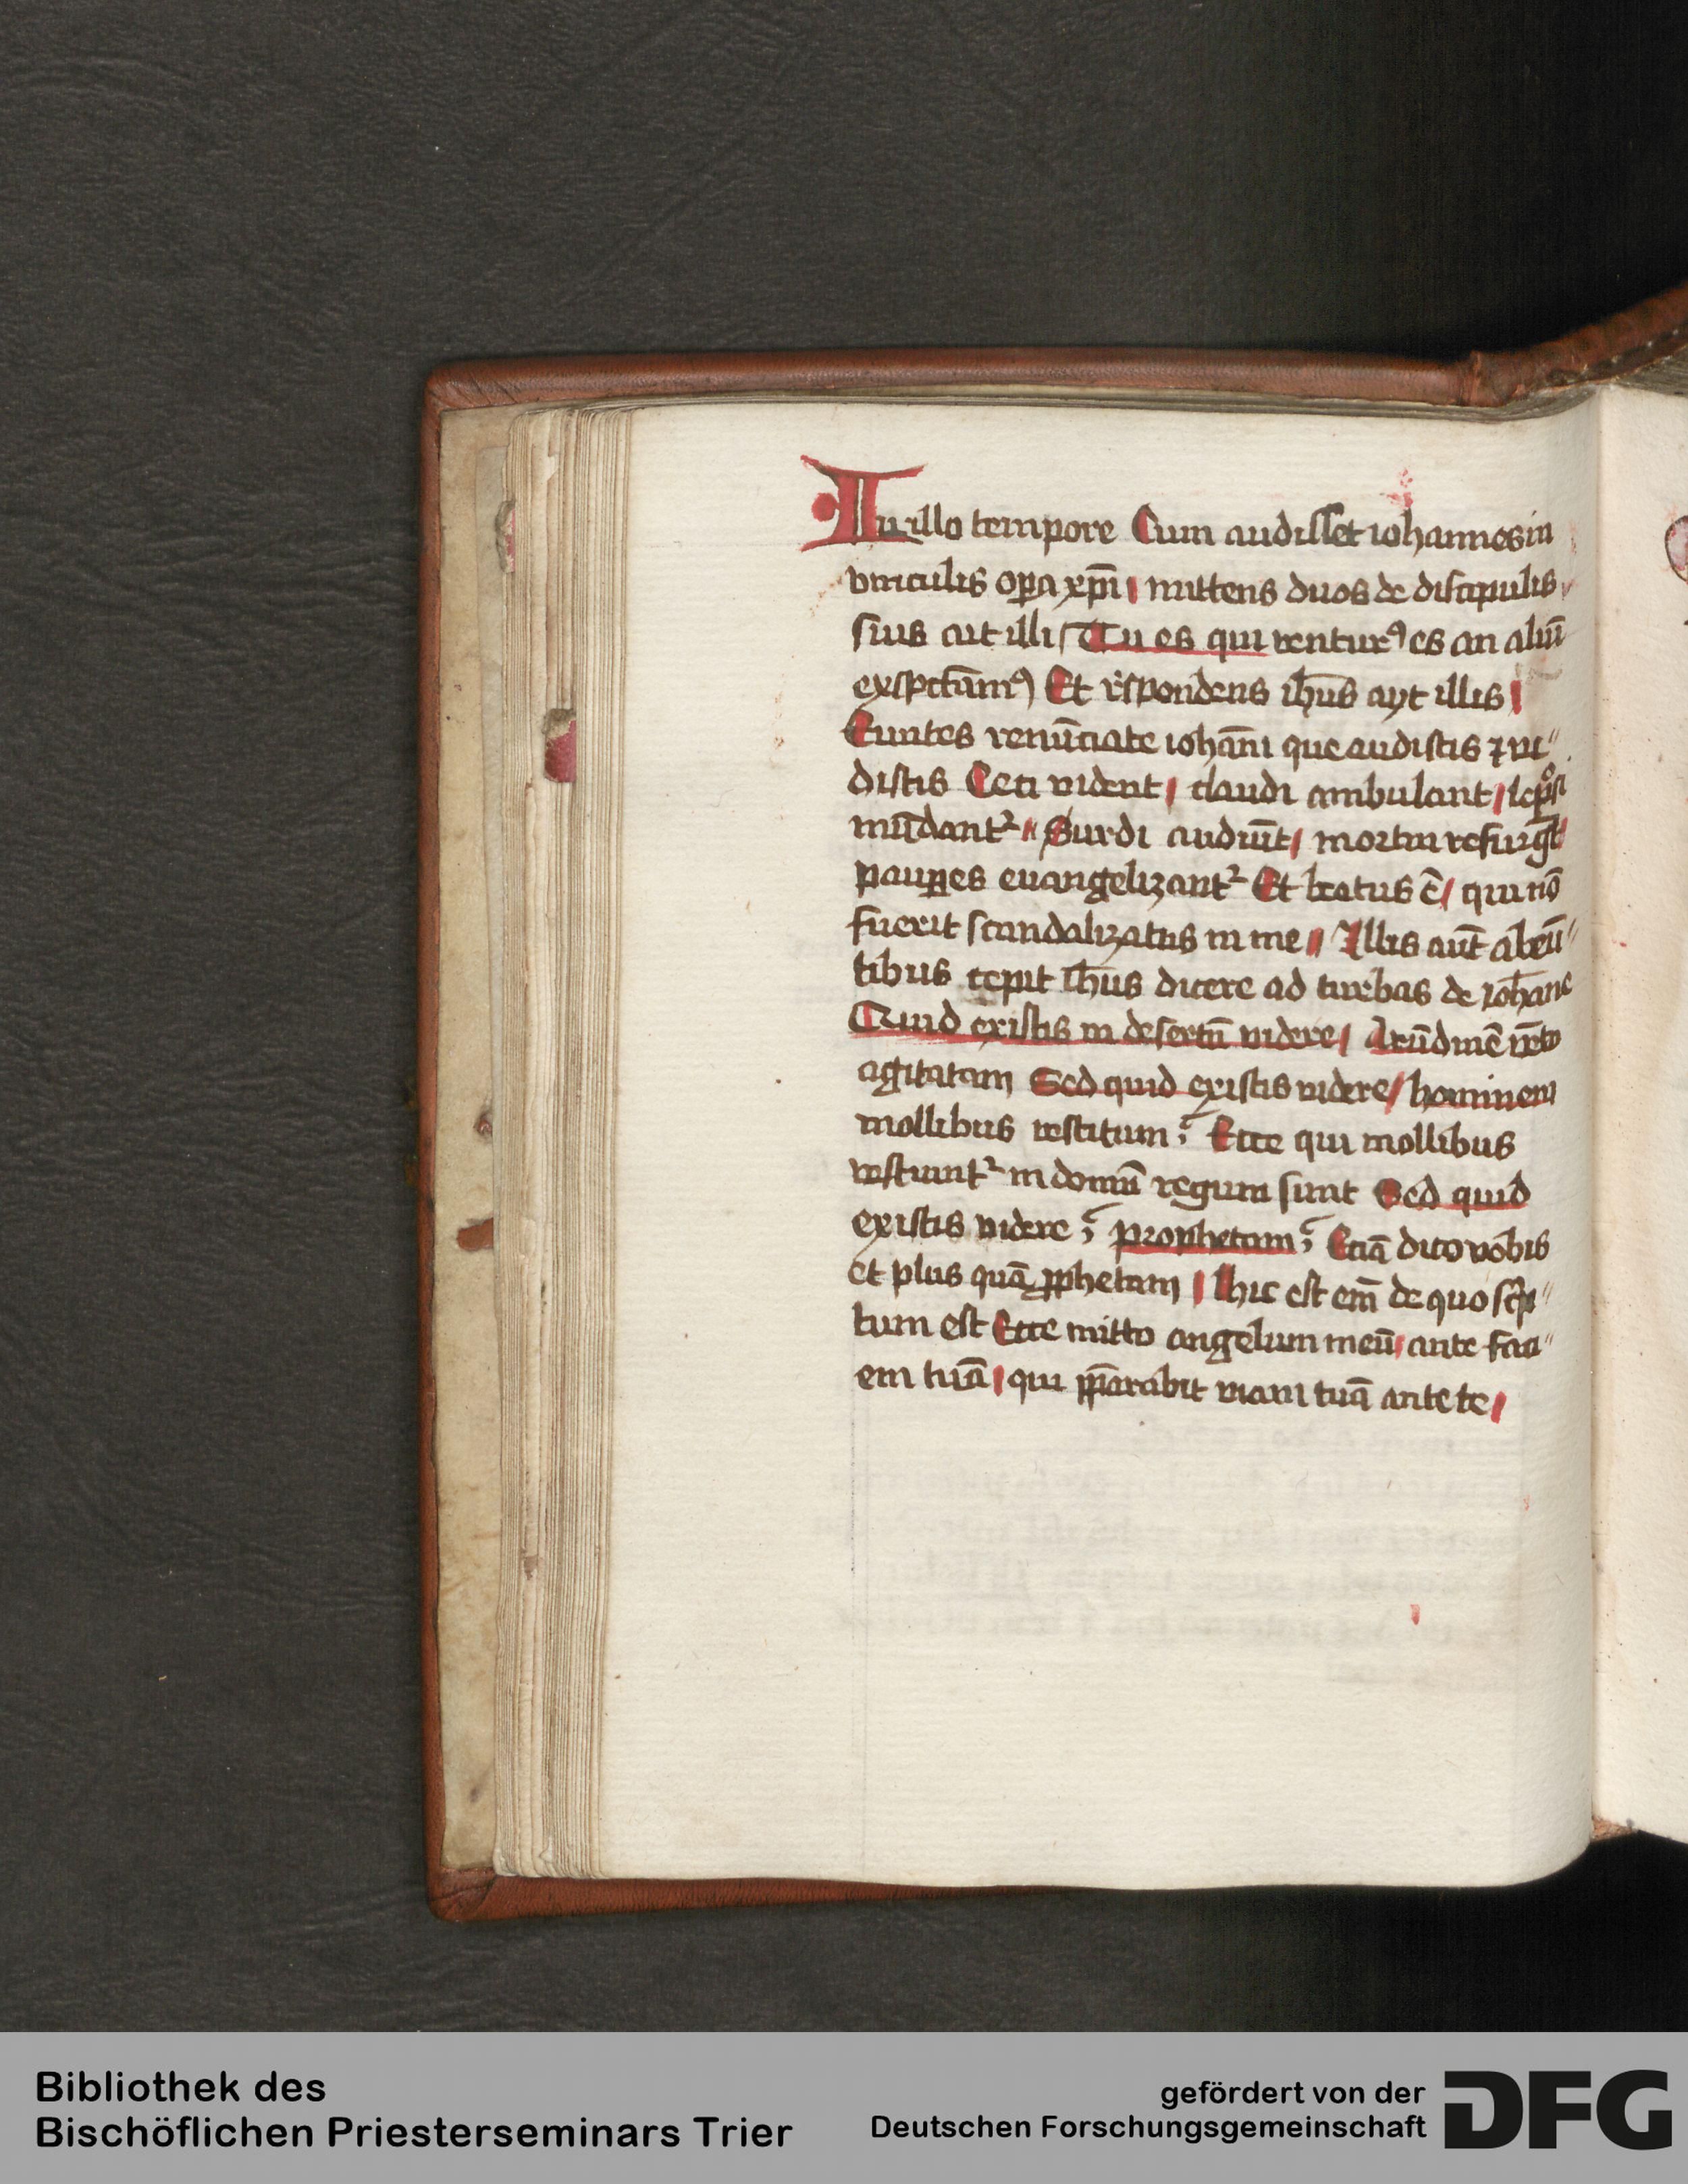 In illo tempore Cum audisset iohannes in
vinculis opa xp̄i mittens duos de discipulis
suis ait illi Tu es qui venturꝯ es an aliū
exspectamꝯ Et respondens ih̄us ayt illis
Euntes renūciate iohāni que audistis ⁊ vi"
distis Ceci vident / claudi ambulant / lep̱si
mūdant² // Surdi audiūt / mortui resurgūt
paup̱es euangelizant² Et beatus ē / qui nō
fuerit scandalizatus in me // Illis aūt abeū"
tibus cepit ih̄us dicere ad turbas de ioh̄ane
Quid existis in desertū videre / Arūdinē vēto
agitatam Sed quid existis videre / hominem
mollibus vestitum ; Ecce qui mollibus
vestiunt² in domū regum sunt Sed quid
existis videre ; prophetam ; Eciā dico vobis
et plus quā ꝓphetam / hic est em̄ de quo scp̄"
tum est Ecce mitto angelum meū / ante faci"
em tuā / qui p̄parabit viam tuā ante te /
Bibliothek des
Bischöflichen Priesterseminars Trier
gefördert von der
Deutschen Forschungsgemeinschaft
DFG